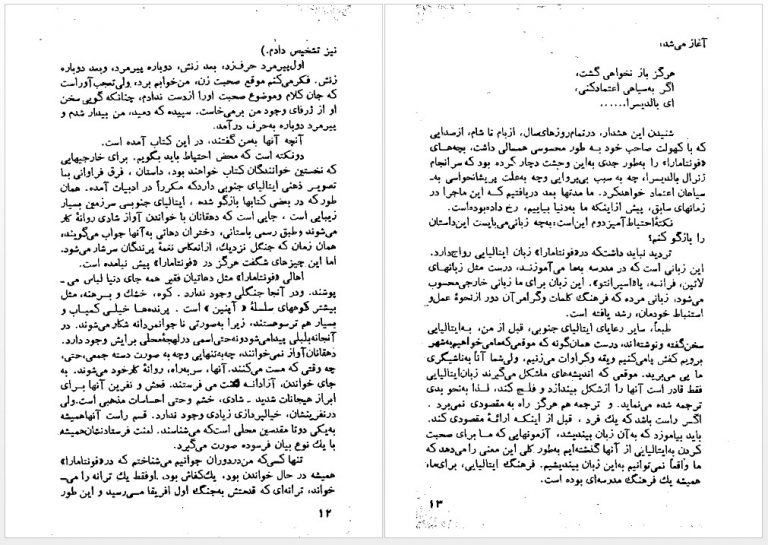 نیز تشخیص دادم.)
اول‌پیرمرد حرف‌زد، بعد زنش، دوباره پیرمرد، وبعد دوباره
زنش. فکرمی‌کنم موقع صحبت زن، من‌خوابم برد، ولی‌تعجب‌آوراست
که جان کلام وموضوع صحبت اورا ازدست ندادم، چنانکه گویی‌سخن
او از ژرفای وجود من برمی‌خاست. سپیده که دمید، من بیدار شدم و
پیرمرد دوباره به‌حرف درآمد.
آنچه آنها به‌من گفتند، در این کتاب آمده است.
دونکته است که محض احتیاط باید بگویم. برای خارجیهایی
که نخستین خوانندگان کتاب خواهند بود، داستان ، فرق فراوانی بـا
تصویـر ذهنی ایتالیای جنوبی داردکه مکرراً در ادبیات آمده. همان
طورکه در بعضی کتابها بازگو شده ، ایتالیای جنوبـی سرزمین بسیار
زیبایی است ، جایی است که دهقانان با خواندن آواز شادی روانهٔ کار
می‌شوند و طبق رسمی باستانی، دختران دهاتی به‌آنها جواب می‌گویند،
همان زمان که جنگل نزدیك، ازانعکاس نغمهٔ پرندگان سرشار می‌شود.
اما این چیزهای شگفت هرگز در «فونتامارا» پیش نیامده است.
اهالی «فونتامارا» مثل دهاتیان فقیر همه جای دنیا لباس مـی ـ
پوشند. ودر آنجا جنگلی وجود ندارد . کوه، خشك و بـرهنه، مثل
بیشتر کوههای سلسلهٔ « آپنین » است . پرنده‌ها خیلی کمیاب و
بسیار هم ترسوهستند، زیرا به‌صورتی نا جوانمردانه شکار می‌شوند. در
آنجابلبلی پیدامی‌شودونه‌حتی‌اسمی درلهجهٔ‌محلی برایش وجود دارد.
دهقانان‌آواز نمی‌خوانند، چه‌به‌تنهایی وچه به صورت دسته جمعی،حتی،
چه وقتی که مست می‌کنند. آنها، سربه‌راه، روانهٔ کارخود می‌شوند. به
جای خواندن، آزادانـه می فرستند. فحش و نفرین آنها برای
ابراز هیجانات شدید ـ شادی، خشم وحتی احساسات مذهبی است.ولی
درنفرینشان، خیالپردازی زیادی وجود ندارد. قسم راست آنهاهمیشه
به‌یکی دوتا مقدسین محلی است‌که می‌شناسند. لعنت فرستادنشان‌همیشه
با یك نوع بیان فرسوده صورت می‌گیرد.
تنها کسی‌که من‌دردوران جوانیم می‌شناختم که در«فونتامارا»
همیشه در حال خواندن بود، یك‌کفاش بود. اوفقط یك ترانه را مـی ـ
خواند، ترانه‌ای که قدمتش به‌جنگ اول افریقا مـی‌رسید و این طور
۱۲
آغاز می‌شد:
هرگز باز نخواهی گشت،
اگر به‌سیاهی اعتمادکنی،
ای بالدیسرا......
شنیدن این هشدار، درتمام‌روزهای‌سال، ازبام تا شام، ازصدایی
که با کهولت صاحب خود به طور محسوسی همسالی داشت، بچه‌های
«فونتامارا» را به‌طور جدی به‌این وحشت دچار کرده بود که سرانجام
ژنرال بالدیسرا، چه به سبب بی‌پروایی وچه به‌علت پریشانحواسی به‌ـ
سیاهان اعتماد خواهدکرد. ما مدتها بعد دریافتیم کـه این ماجرا در
زمانهای سابق، پیش ازاینکه ما به‌دنیا بیاییم، رخ داده‌بوده‌است.
نکتهٔ‌احتیاط‌آمیزدوم این‌است:به‌چه زبانی‌می‌بایست این‌داستان
را بازگو کنم؟
تردید نباید داشت‌که در«فونتامارا» زبان ایتالیایی رواج‌دارد.
این زبانی است که در مدرسه به‌ما می‌آموزند، درست مثل زبانهای
لاتین، فرانسه، یا«اسپرانتو». این زبان برای ما زبانی خارجی‌محسوب
می‌شود، زبانی مرده که فرهنگ کلمات وگرامرآن دور ازنحوهٔ عمل‌و
استنباط خودمان، رشد یافته است.
طبعاً، سایر رعایای ایتالیای جنوبی، قبل از من، بـه‌ایتالیایی
سخن‌گفته ونوشته‌اند، درست همان‌گونه که موقعی‌که‌مامی‌خواهیم‌به‌شهر
برویم کفش پامی‌کنیم ویقه وکراوات می‌زنیم. ولی‌شما آنابه‌ناشیگری
ما پی می‌برید. موقعی که اندیشه‌های ماشکل می‌گیرند زبان‌ایتالیایی
فقط قادر است آنها را ازشکل بیندازد و فلج کند، لـذا به‌نحو بدی
ترجمه شده می‌نماید. و ترجمه هم هرگز راه به مقصودی نمی‌برد .
اگـر راست باشد که یك فـرد ، قبل از اینکـه ارائهٔ مقصودی کند،
باید بیاموزد که به‌آن زبان بیندیشد، آزمونهایی که مـا برای صحبت
کردن به‌ایتالیایی از آنها گذشته‌ایم به‌طور کلی این معنی را می‌دهد که
ما واقعاً نمی‌توانیم به‌این زبان بیندیشیم. فرهنگ ایتالیایی، برای‌ما،
همیشه یك فرهنگ مدرسه‌ای بوده است.
۱۳